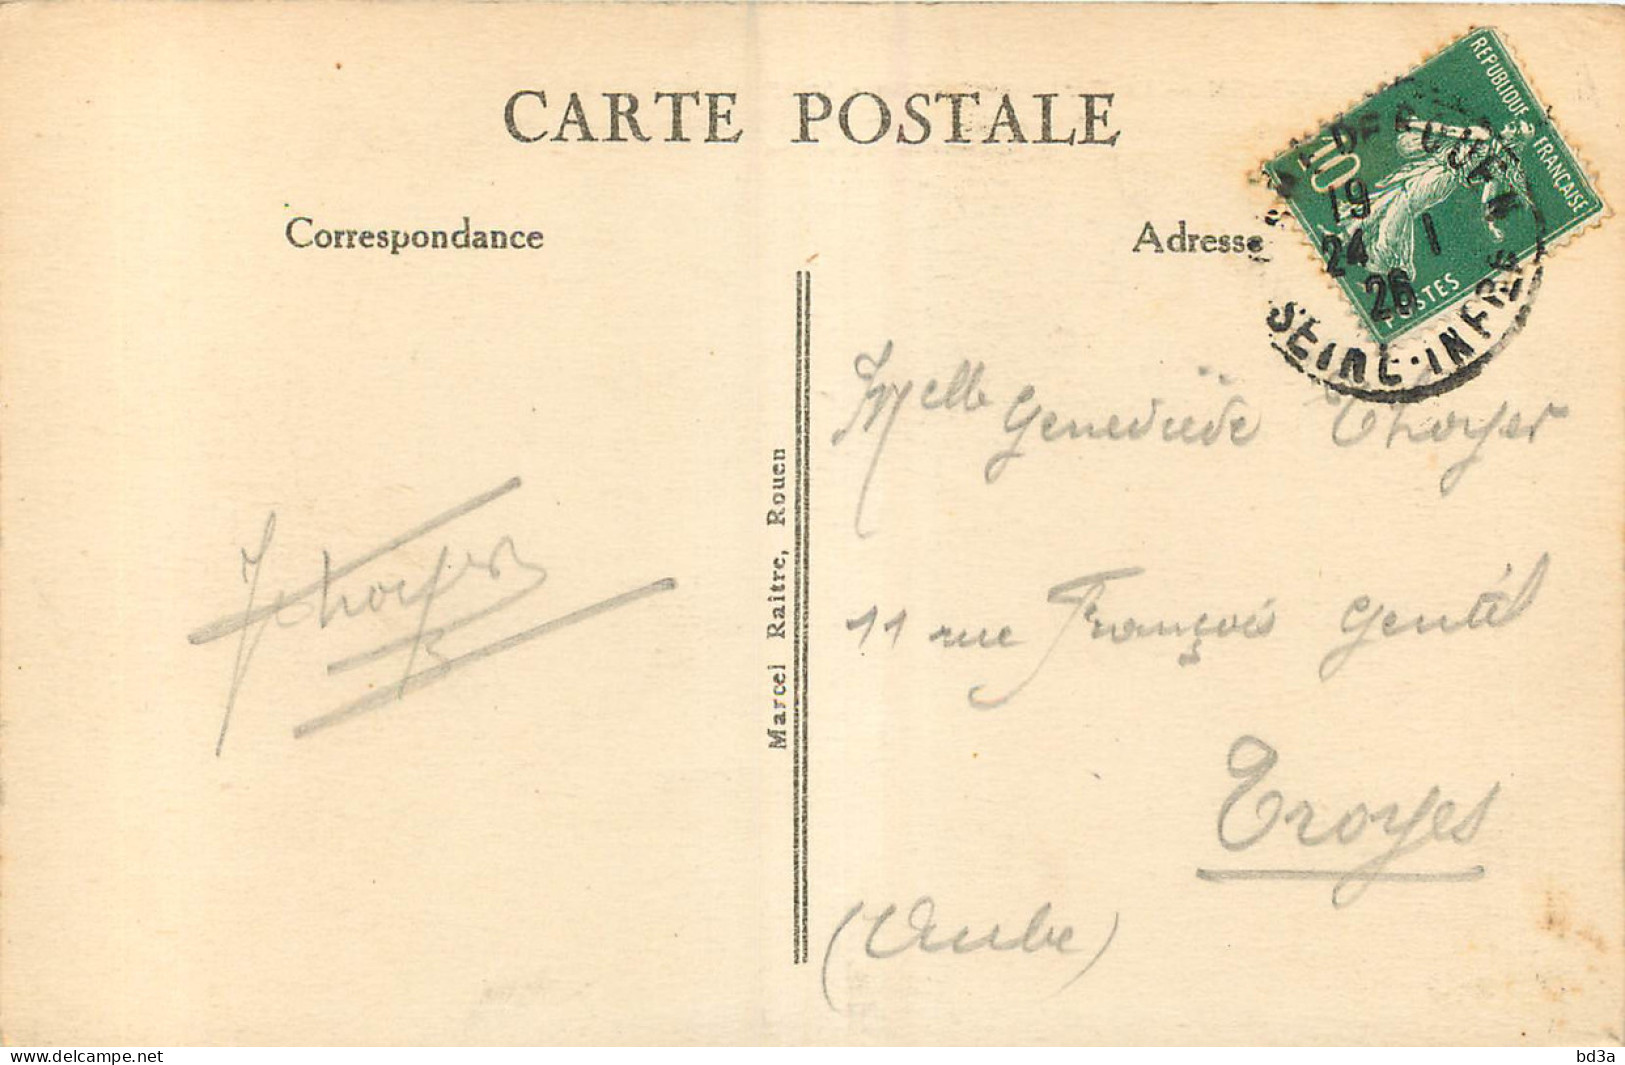 CARTE POSTALE
Correspondance
Adresse
RÉPUBLIQUE FRANÇAISE
10
POSTES
DE ROUEN
19
24 1
26
SEINE-INFRE
Marcel Raitre, Rouen
Melle Geneviève Thoyer
11 rue François Gentil
Troyes
(Aube)
Thoyer
www.delcampe.net
bd3a